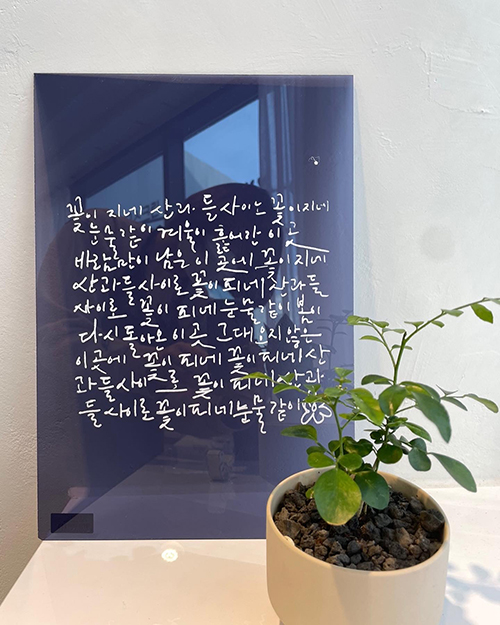 꽃이 지네 산과 들 사이로 꽃이지네
눈물같이 겨울이 훑어간 이 곳
바람만이 남은 이 곳에 꽃이지네
산과들 사이로 꽃이 피네 산과들
사이로 꽃이 피네 눈물같이 봄이
다시 돌아온 이 곳 그대 오지 않은
이 곳에 꽃이 피네 꽃이 피네 산
과들 사이로 꽃이 피네 산과
들 사이로 꽃이 피네 눈물같이